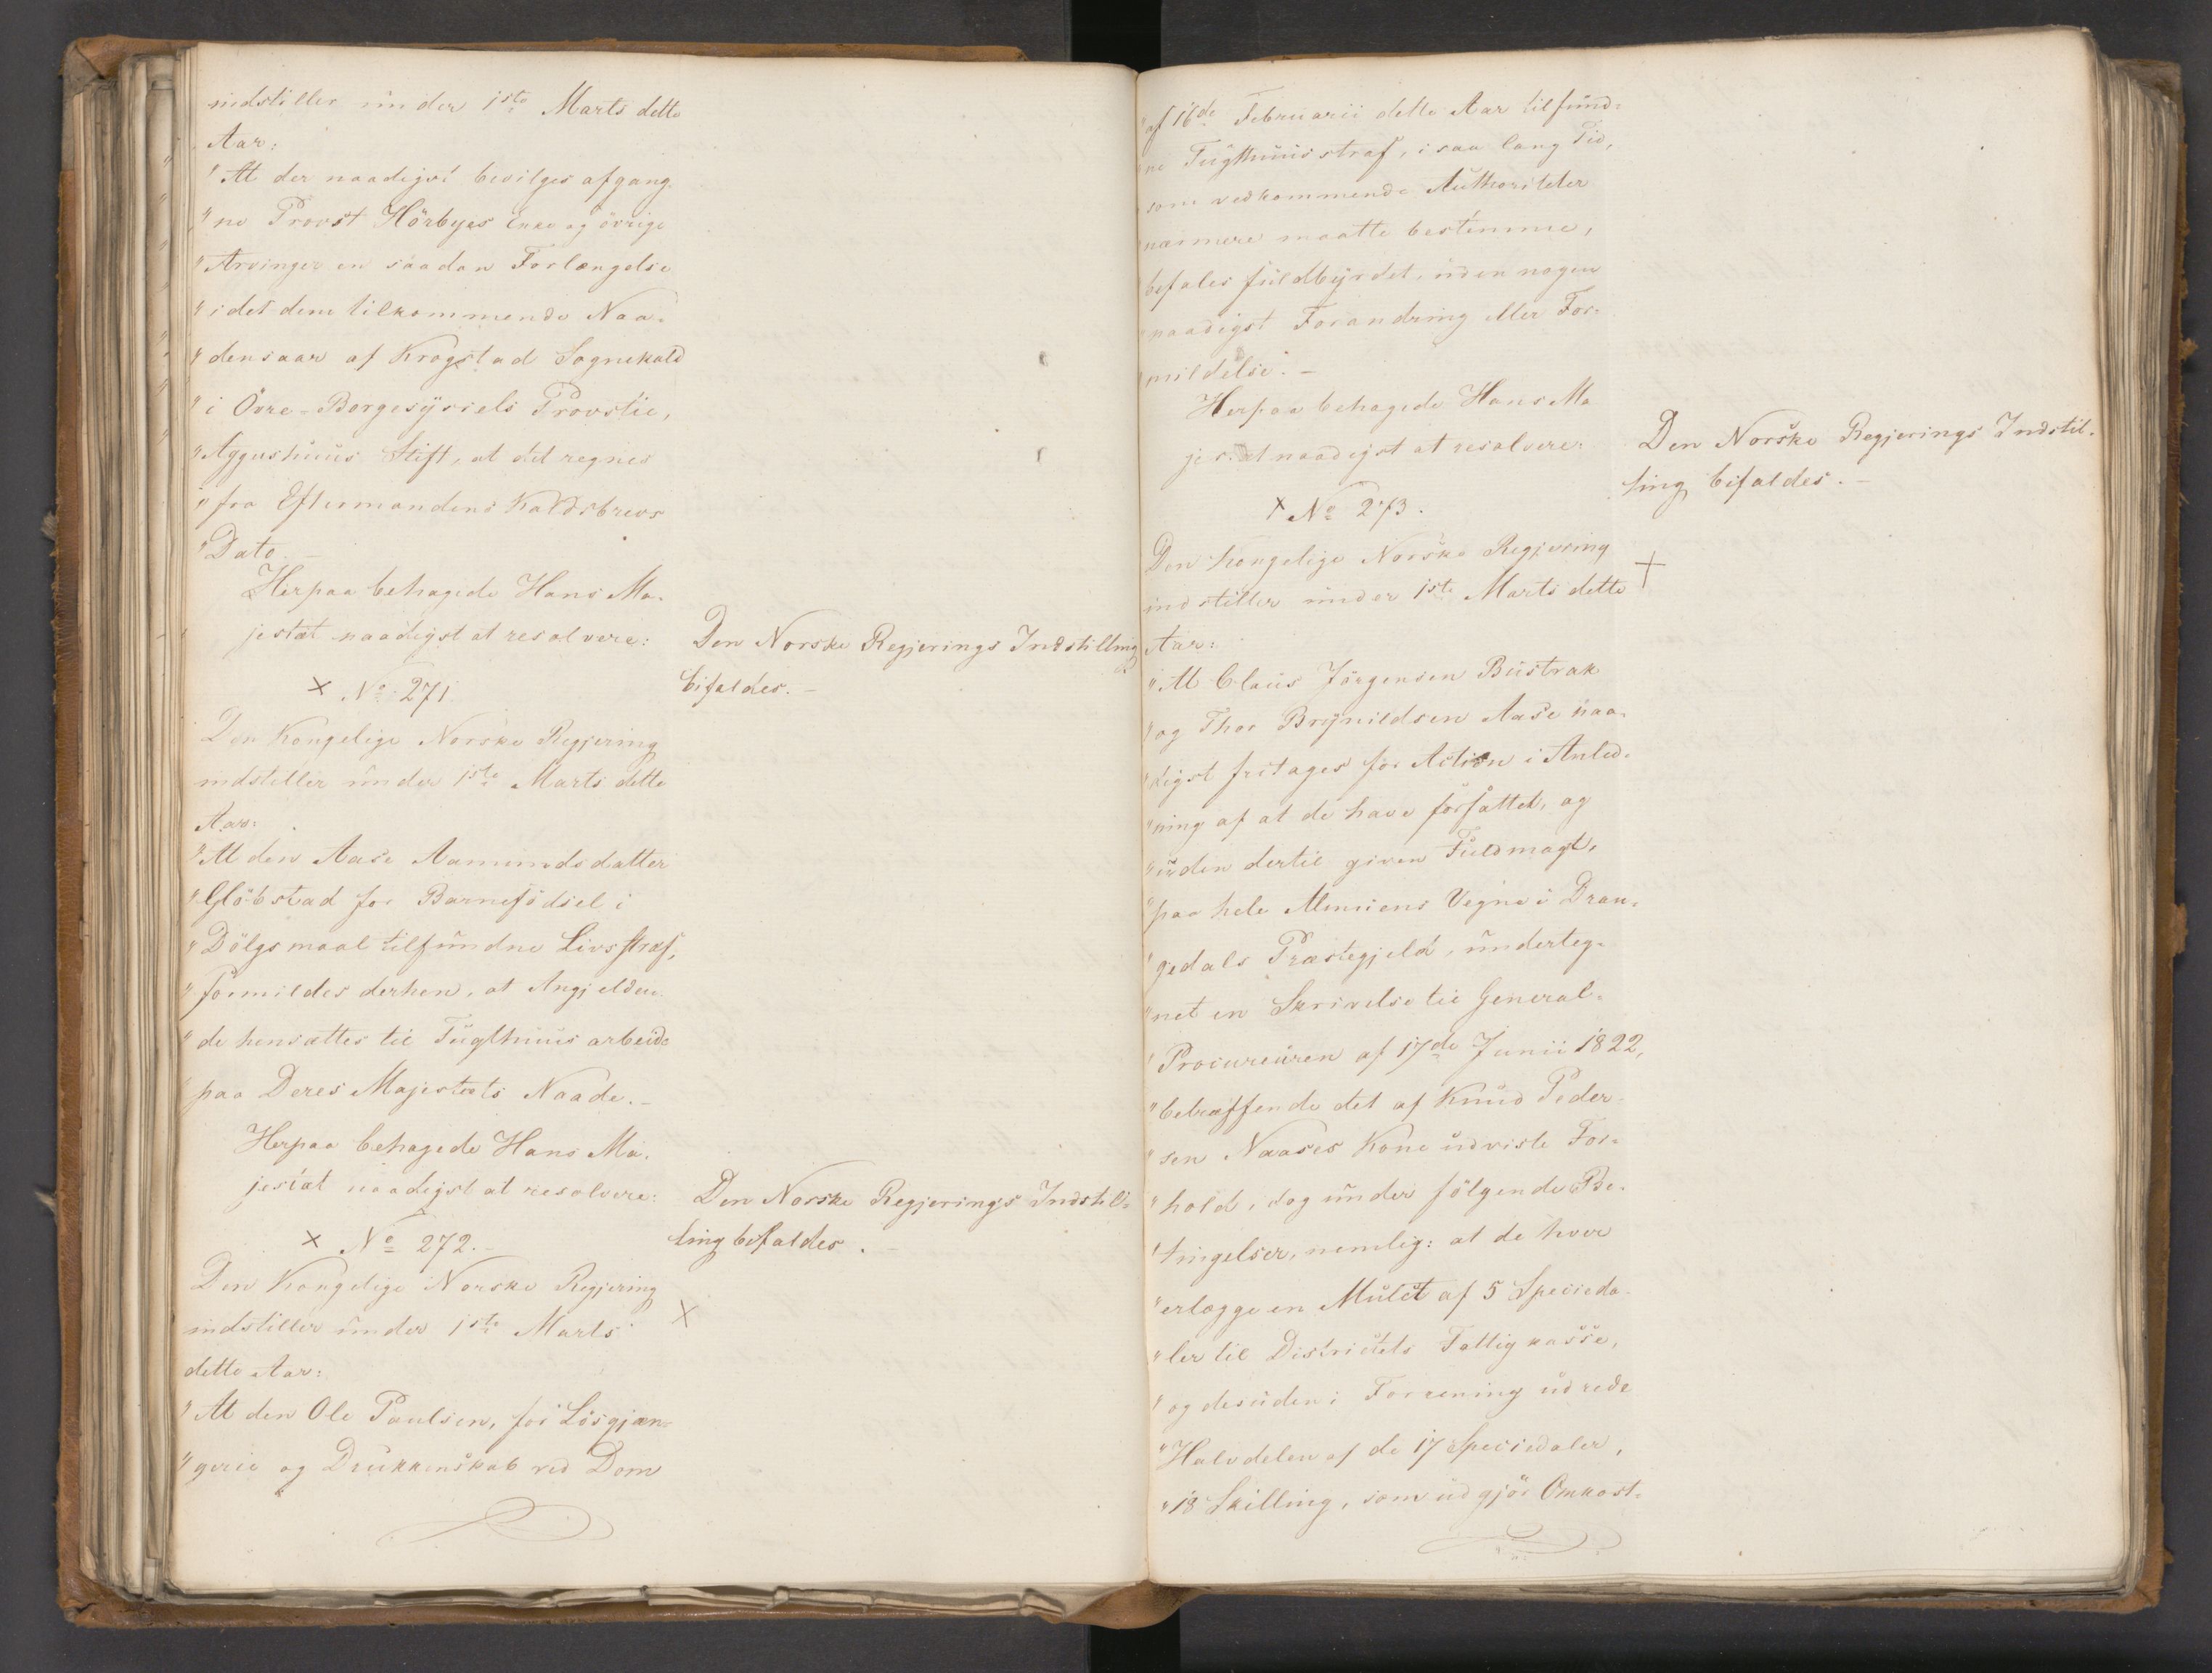 indstiller under 1ste Marts dette
Aar:
"At der naadigst bevilges afgang-
"ne Provst Hörbyes Enke og övrige
"Arvinger en saadan Forlængelse
"i det dem tilkommende Naa-
"densaar af Krogstad Sognekald
"i Övre-Borgesyssels Provstie,
"Aggushuus Stift, at det regnes
"fra Eftermandens Kaldsbrevs
"Dato. –
Herpaa behagede Hans Ma-
jestæt naadigst at resolvere:
Den Norske Regjerings Indstilling
bifaldes. –
× No 271
Den Kongelige Norske Regjering
indstiller under 1ste Marts dette
Aar:
"At den Aase Aamundsdatter
"Glöbstad for Barnefödsel i
"Dölgsmaal tilfundne Livsstraf,
"formildes derhen, at Angjelden-
"de hensættes til Tugthuusarbeide
"paa Deres Majestæts Naade. –
Herpaa behagede Hans Ma-
jestæt naadigst at resolvere:
Den Norske Regjerings Indstil-
ling bifaldes. –
× No 272. –
Den Kongelige Norske Regjering
indstiller under 1ste Marts
×
dette Aar:
"At den Ole Paulsen, for Lösgjæn-
"gerie og Drukkenskab ved Dom
"af 16de Februarii dette Aar tilfund-
"ne Tugthuusstraf, i saa lang Tid,
"som vedkommende Authoriteter
"nærmere maatte bestemme,
"befales fuldbyrdet, uden nogen
"naadigst Forandring eller For-
"mildelse. –
Herpaa behagede Hans Ma
jestæt naadigst at resolvere:
Den Norske Regjerings Indstil-
ling bifaldes. –
× No 273.
Den kongelige Norske Regjering
×
indstiller under 1ste Marts dette
Aar:
"At Claus Jörgensen Bustrak
"og Thor Brynildsen Aase naa-
"digst fritages for Action i Anled-
"ning af at de have forfattet, og
"uden dertil given Fuldmagt,
"paa hele Almuens Vegne i Dran-
"gedals Præstegjeld, underteg-
"net en Skrivelse til General-
"Procureuren af 17de Junii 1822,
"betræffende det af Knud Peder-
"sen Naases Kone udviste For-
"hold, dog under fölgende Be-
"tingelser, nemlig: at de hver
"erlægge en Mulct af 5 Specieda-
"ler til Districtets Fattigkasse,
"og desuden i Forening udrede
"Halvdelen af de 17 Speciedaler,
"18 Skilling, som udgjör Omkost-